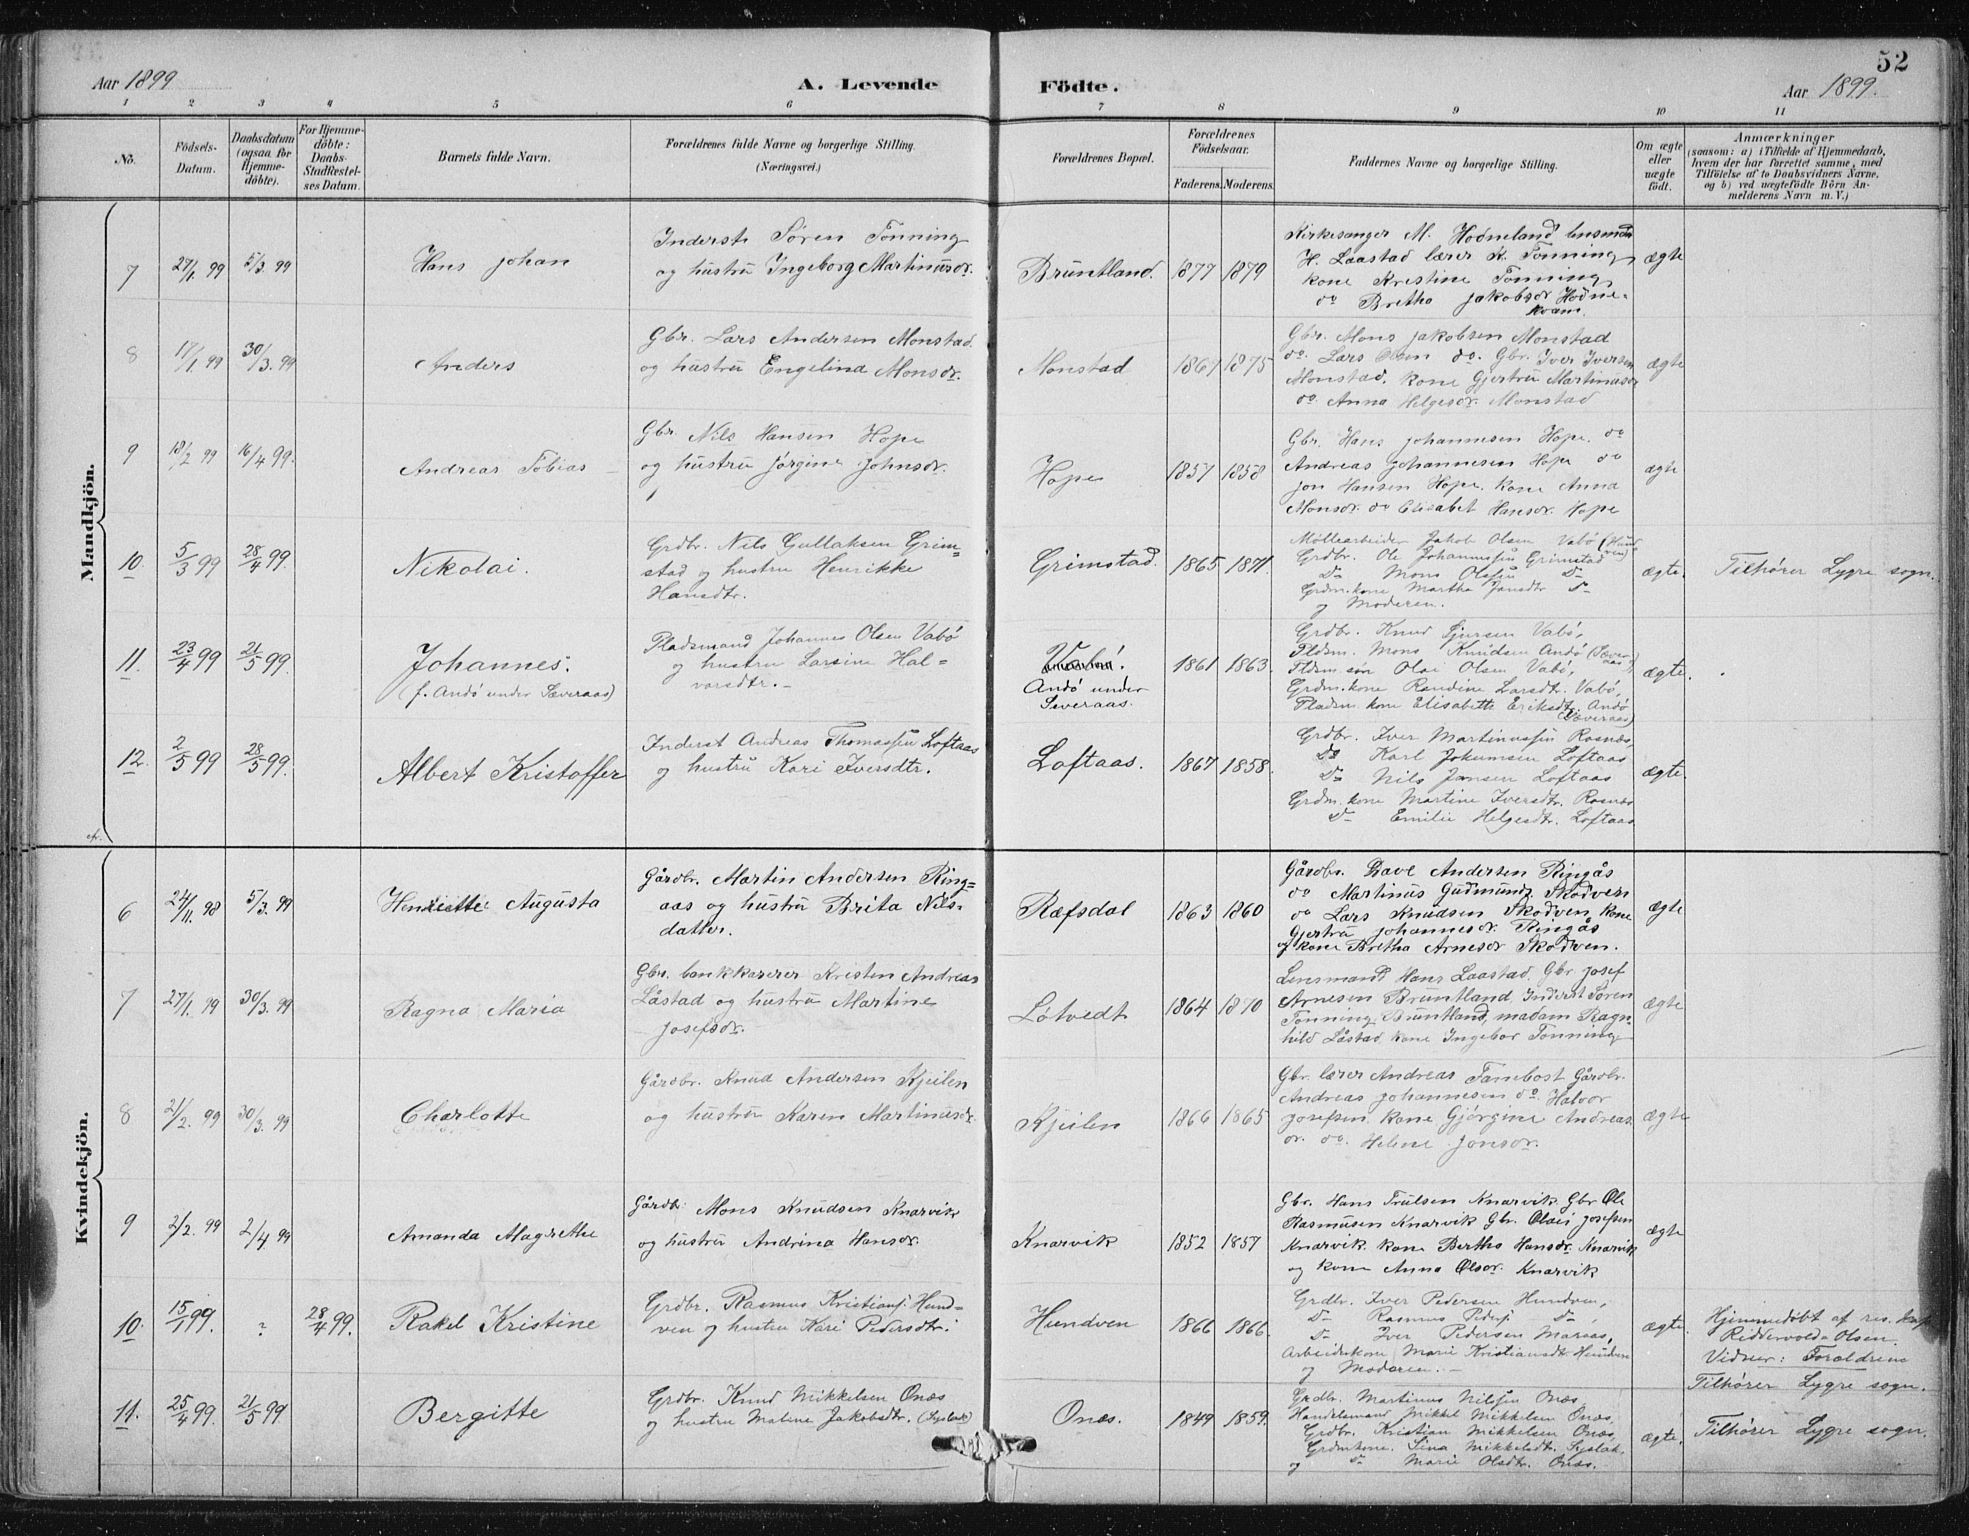 52
Aar 1899
A. Levende Födte.
Aar 1899.
1 2 3 4 5 6 7 8 9 10 11
No.
Födsels-
Datum.
Daabsdatum
(ogsaa for
Hjemme-
döbte).
For Hjemme-
döbte:
Daabs-
Stadfæstel-
ses Datum.
Barnets fulde Navn.
Forældrenes fulde Navne og borgerlige Stilling.
(Næringsvei.)
Forældrenes Bopæl.
Forældrenes
Födselsaar.
Faderens. Moderens.
Faddernes Navne og borgerlige Stilling.
Om ægte
eller
uægte
födt.
Anmærkninger
(saasom: a) i Tilfælde af Hjemmedaab,
hvem der har forrettet samme, med
Tilföielse af to Daabsvidners Navne,
og b) ved uægtefödte Börn An-
melderens Navn m. V.)
Mandkjön.
7 27/1 99 5/3. 99
Hans Johan
Inderst Søren Tonning
og hustru Ingeborg Martinusdr.
Bruntland. 1877 1879
Kirkesanger M. Hodneland lensmdn
H. Laastad lærer K. Tonning
kone Kristine Tonning
do Bretha Jakobsdr Hodne-
kvam.
ægte
8 17/1 99 30/3. 99
Anders
Gbr. Lars Andersen Monstad
og hustru Engelina Monsdr.
Monstad 1867 1875
Gbr. Mons Jakobsen Monstad
do. Lars Olsen do. Gbr. Iver Iversen
Monstad. kone Gjertru Martinusdr
do. Anna Helgesdr. Monstad
ægte
9 18/2 99 16/4 99.
Andreas Tobias
Gbr. Nils Hansen Hope
og hustru Jørgine Johnsdr.
Hope 1857 1858
Gbr. Hans Johannesen Hope. do
Andreas Johannesen Hope do
Jon Hansen Hope. kone Anna
Monsdr. do Elisabet Hansdr. Hope
ægte
10. 5/3 99 28/4 99.
Nikolai.
Grdbr. Nils Gullaksen Grim=
stad og hustru Henrikke
Hansdtr.
Grimstad. 1865 1871.
Møllearbeider Jakob Olsen Vabø (Hund
ven)
Grdbr. Ole Johannessen Grimstad
Do Mons Olsen Do
Grdm.kone Martha Jansdtr Do
og Moderen.
ægte.
Tilhører Lygre sogn.
11. 23/4 99 21/5 99.
Johannes.
(f. Andø under Sæveraas)
Pladsmand Johannes Olsen Vabø
og hustru Larsine Hal=
vorsdtr.
Vabø.
Andø under
Sæveraas.
1861 1863.
Grdbr. Knud Sjursen Vabø,
Pldsm. Mons Knudsen Andø (Sæver-
aas)
Pldsm.søn Olai Olsen Vabø,
Grdm.kone Randine Larsdtr. Vabø,
Pladsm.kone Elisabeth Eriksdtr. Andø
(Sæveraas)
ægte.
12. 2/5 99 28/5 99.
Albert Kristoffer
Inderst Andreas Thomassen Loftaas
og hustru Kari Iversdtr.
Loftaas. 1867 1858.
Grdbr. Iver Martinussen Rosnæs,
Do Karl Johansen Loftaas
Do Nils Jansen Loftaas
Grdm.kone Martine Iversdtr. Rosnæs
Do Emilie Helgesdtr. Loftaas
ægte.
Kvindekjön.
6 24/11. 98 5/3. 99
Henriette Augusta
Gårdbr. Martin Andersen Ring=
aas og hustru Brita Nils-
datter.
Ræfsdal 1863 1860
Gårdbr. Dave Andersen Ringås
do Martinus Gudmunds. Skodven
do Lars Knudsen Skodven. kone
Gjertru Johannesdr. Ringås
og kone Bretha Arnesdr Skodven.
ægte
7 27/1. 99 30/3. 99
Ragna Maria
Gbr. bankkaserer Kristen Andreas
Låstad og hustru Martine
Josefsdr.
Løtvedt 1864 1870
Lensmand Hans Laastad. Gbr Josef
Arnesen Bruntland, Inderst Søren
Tonning Bruntland, madam Ragn-
hild Låstad kone Ingebor Tonning
ægte
8 21/2. 99 30/3. 99
Charlotte
Gårdbr. Knud Andersen Kjeilen
og hustru Karen Martinusdr.
Kjeilen 1866 1865
Gbr. lærer Andreas Tanebost Gårdbr.
Andreas Johannesen do. Halvor
Josefsen kone Gjørgine Andreas
dr. do. Helene Jonsdr.
ægte
9 2/2. 99 2/4 99
Amanda Magrethe
Gårdbr. Mons Knudsen Knarvik
og hustru Andrina Hansdr.
Knarvik 1852 1857
Gbr. Hans Trulsen Knarvik Gbr Ole
Rasmusen Knarvik Gbr. Olai Josefsen
Knarvik. kone Bertha Hansdr. Knarvik
og kone Anna Olsdr. Knarvik
ægte
10. 15/1 99. ? 28/4 99.
Rakel Kristine
Grdbr. Rasmus Kristians. Hund=
ven og hustru Kari Pedersdtr.
Hundven 1866 1866.
Grdbr. Iver Pedersen Hundven,
Do Rasmus Peders. Do,
Do Iver Pedersen Maraas,
Arbeiderkone Marie Kristiansdtr Hundven
og Moderen.
ægte.
Hjemmedøbt af res. kap.
Riddervold-Olsen.
Vidner: Forældrene
Tilhører Lygre sogn.
11. 25/4 99. 21/5 99
Bergitte
Grdbr. Knud Mikkelsen Onæs
og hustru Malene Jakobsdtr.
Onæs. 1849 1859.
Grdbr. Martinus Nilsen Onæs
Handelsmand Mikkel Mikkelsen Onæs,
Grdbr. Kristian Mikkelsen Onæs,
Grdmkone. Sina Mikkelsdtr.
og Do Marie Olsdtr. Onæs.
ægte.
Tilhører Lygre sogn.